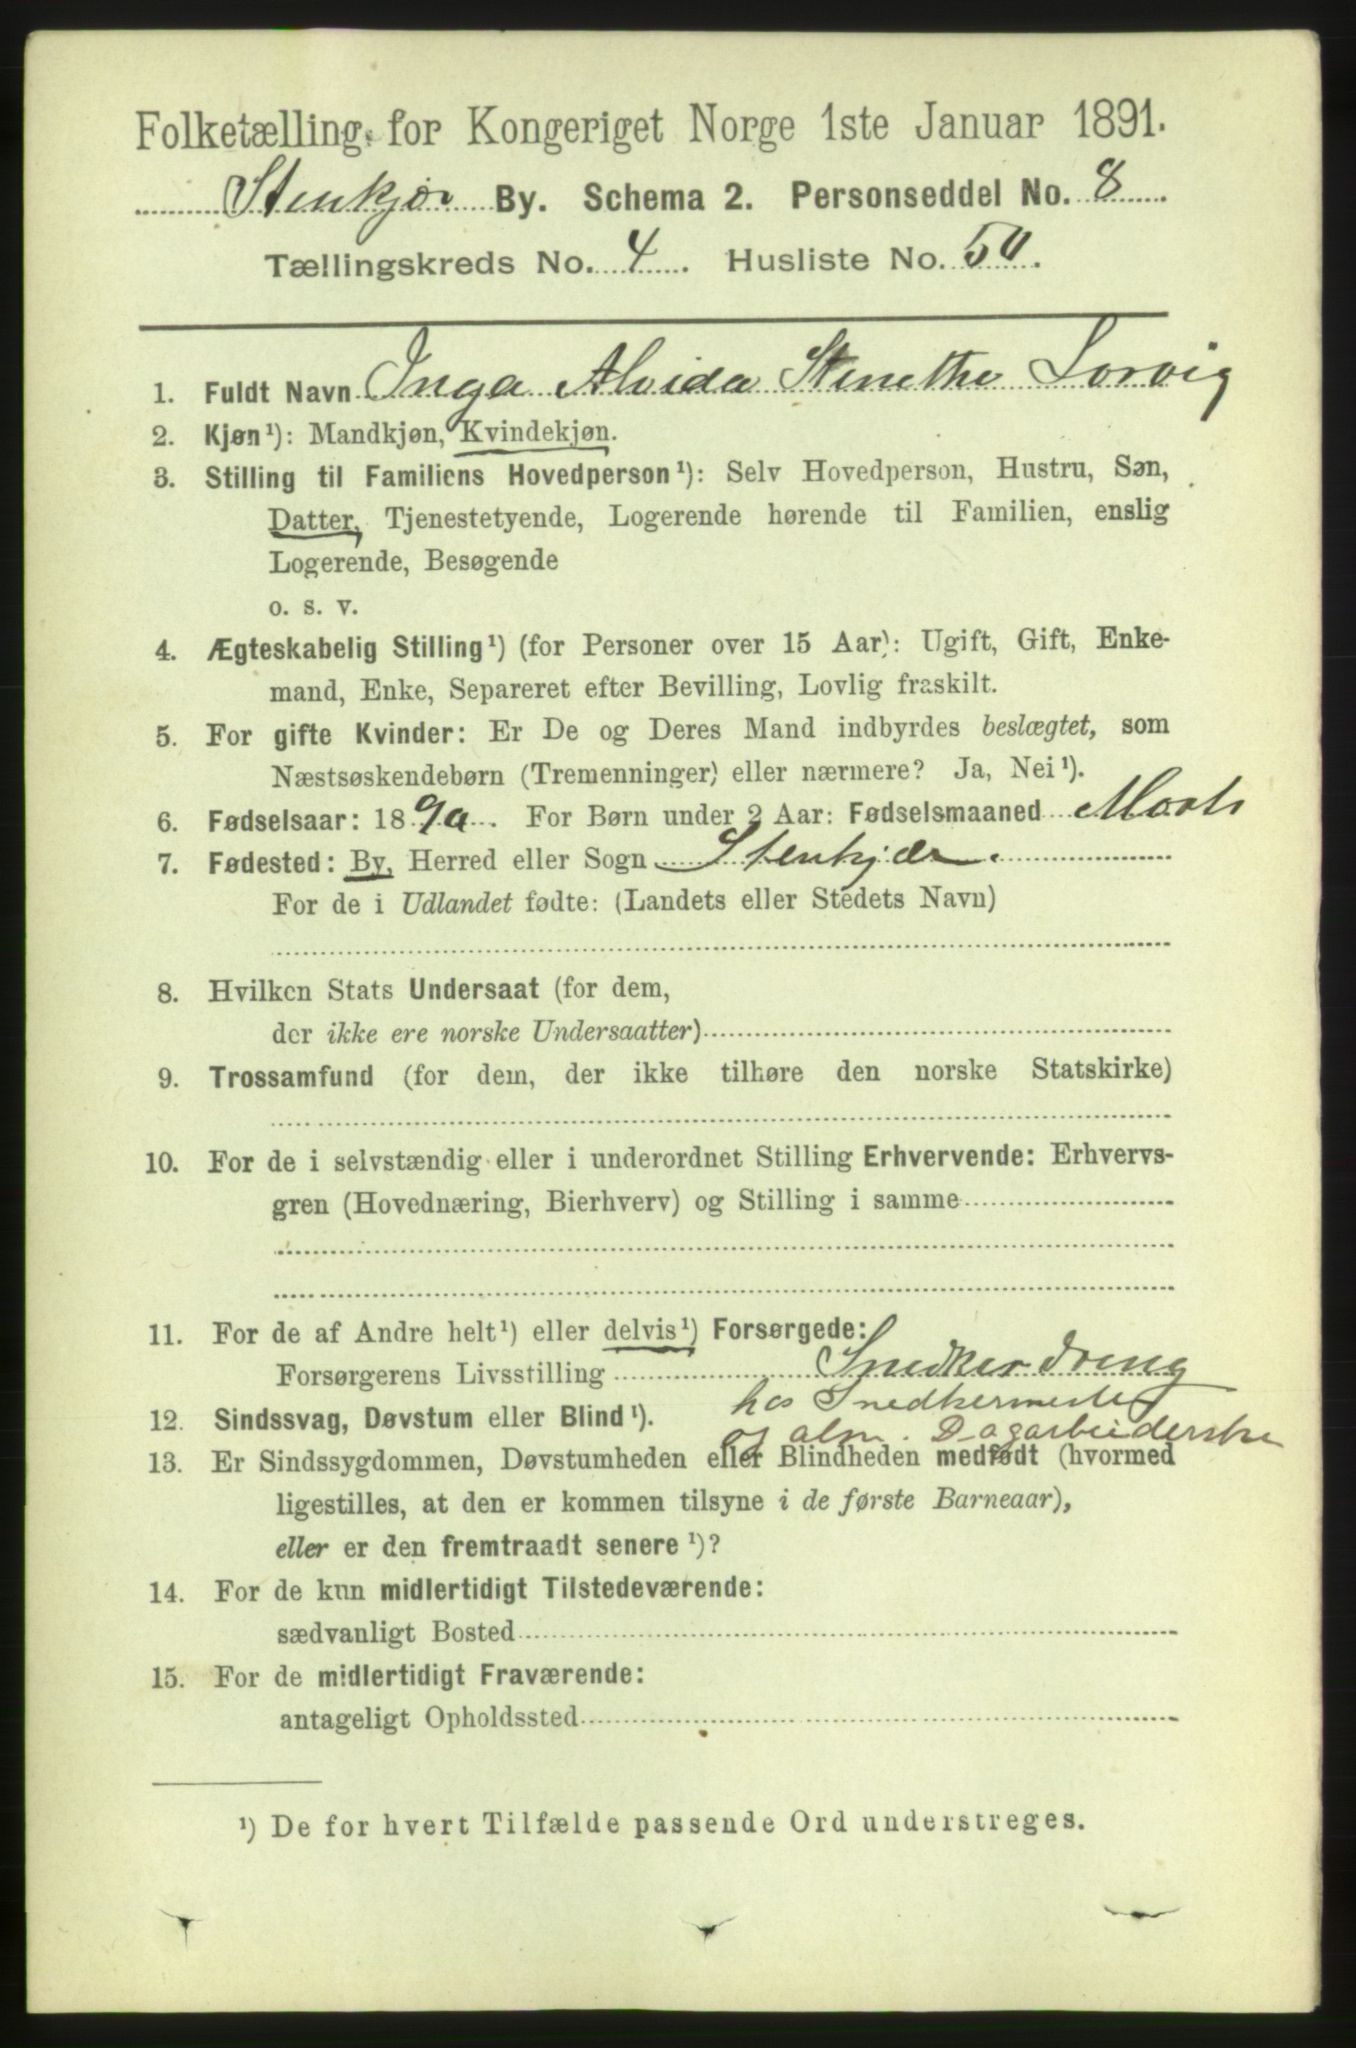 Folketælling for Kongeriget Norge 1ste Januar 1891.
Stenkjær By. Schema 2. Personseddel No. 8
Tællingskreds No. 4. Husliste No. 50.
1. Fuldt Navn Inga Alvida Stinethe Lorvig
2. Kjøn¹): Mandkjøn, Kvindekjøn.
3. Stilling til Familiens Hovedperson¹): Selv Hovedperson, Hustru, Søn,
Datter, Tjenestetyende, Logerende hørende til Familien, enslig
Logerende, Besøgende
o. s. v.
4. Ægteskabelig Stilling¹) (for Personer over 15 Aar): Ugift, Gift, Enke-
mand, Enke, Separeret efter Bevilling, Lovlig fraskilt.
5. For gifte Kvinder: Er De og Deres Mand indbyrdes beslægtet, som
Næstsøskendebørn (Tremenninger) eller nærmere? Ja, Nei¹).
6. Fødselsaar: 1890. For Børn under 2 Aar: Fødselsmaaned Marts
7. Fødested: By, Herred eller Sogn Stenkjær.
For de i Udlandet fødte: (Landets eller Stedets Navn)
8. Hvilken Stats Undersaat (for dem,
der ikke ere norske Undersaatter)
9. Trossamfund (for dem, der ikke tilhøre den norske Statskirke)
10. For de i selvstændig eller i underordnet Stilling Erhvervende: Erhvervs-
gren (Hovednæring, Bierhverv) og Stilling i samme
11. For de af Andre helt¹) eller delvis¹) Forsørgede:
Forsørgerens Livsstilling Snedkerdreng
hos Snedkermester
12. Sindssvag, Døvstum eller Blind¹).
og alm. Dagarbeiderske
13. Er Sindssygdommen, Døvstumheden eller Blindheden medfødt (hvormed
ligestilles, at den er kommen tilsyne i de første Barneaar),
eller er den fremtraadt senere¹)?
14. For de kun midlertidigt Tilstedeværende:
sædvanligt Bosted
15. For de midlertidigt Fraværende:
antageligt Opholdssted
¹) De for hvert Tilfælde passende Ord understreges.